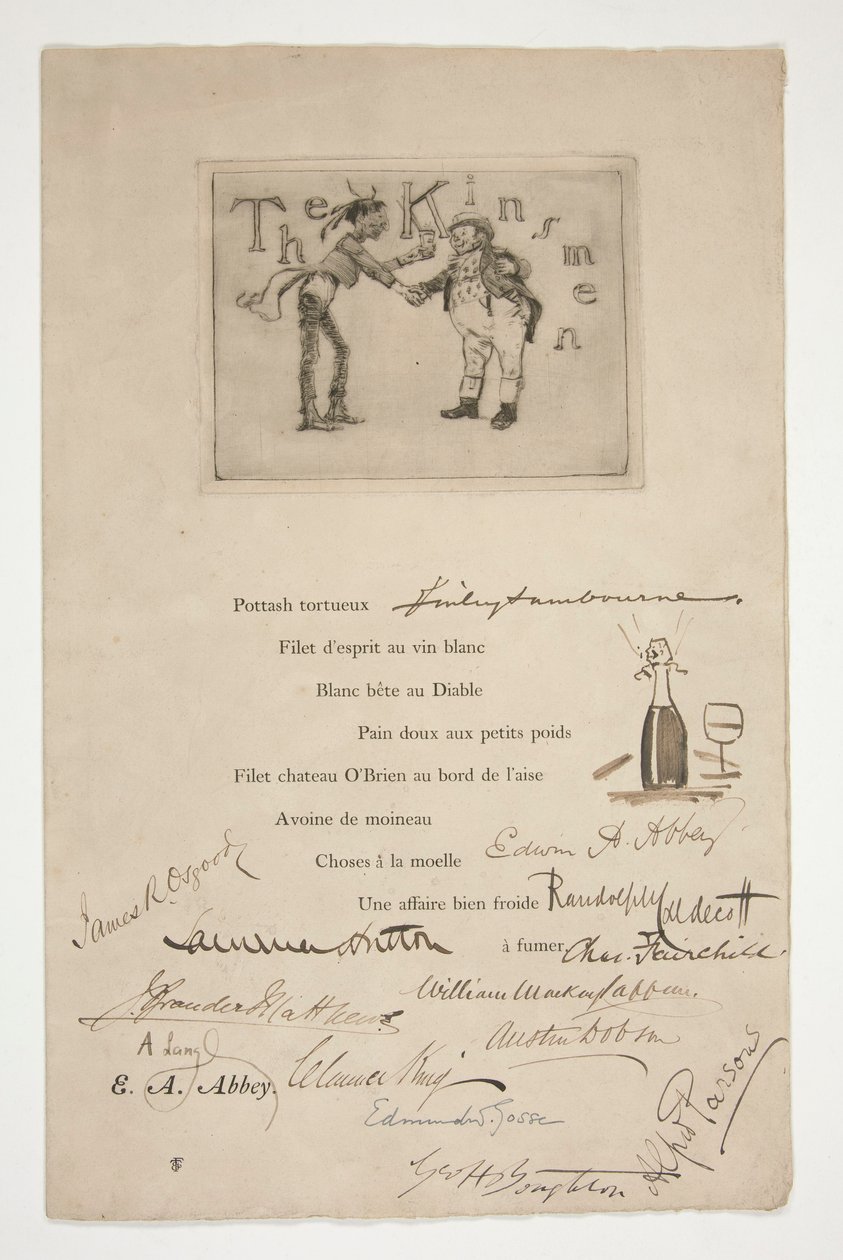 The Kinsmen
Pottash tortueux Linley Sambourne.
Filet d'esprit au vin blanc
Blanc bête au Diable
Pain doux aux petits poids
Filet chateau O'Brien au bord de l'aise
Avoine de moineau
Edwin A. Abbey
Choses à la moelle
James R. Osgood
Une affaire bien froide Randolph Caldecott
Laurence Hutton
à fumer. Chas. Fairchild.
William Mackay Laffan.
J. Brander Matthews
Austin Dobson
A Lang
E. A. Abbey. Clarence King
Edmund W. Gosse
Alfred Parsons
Geo H Boughton